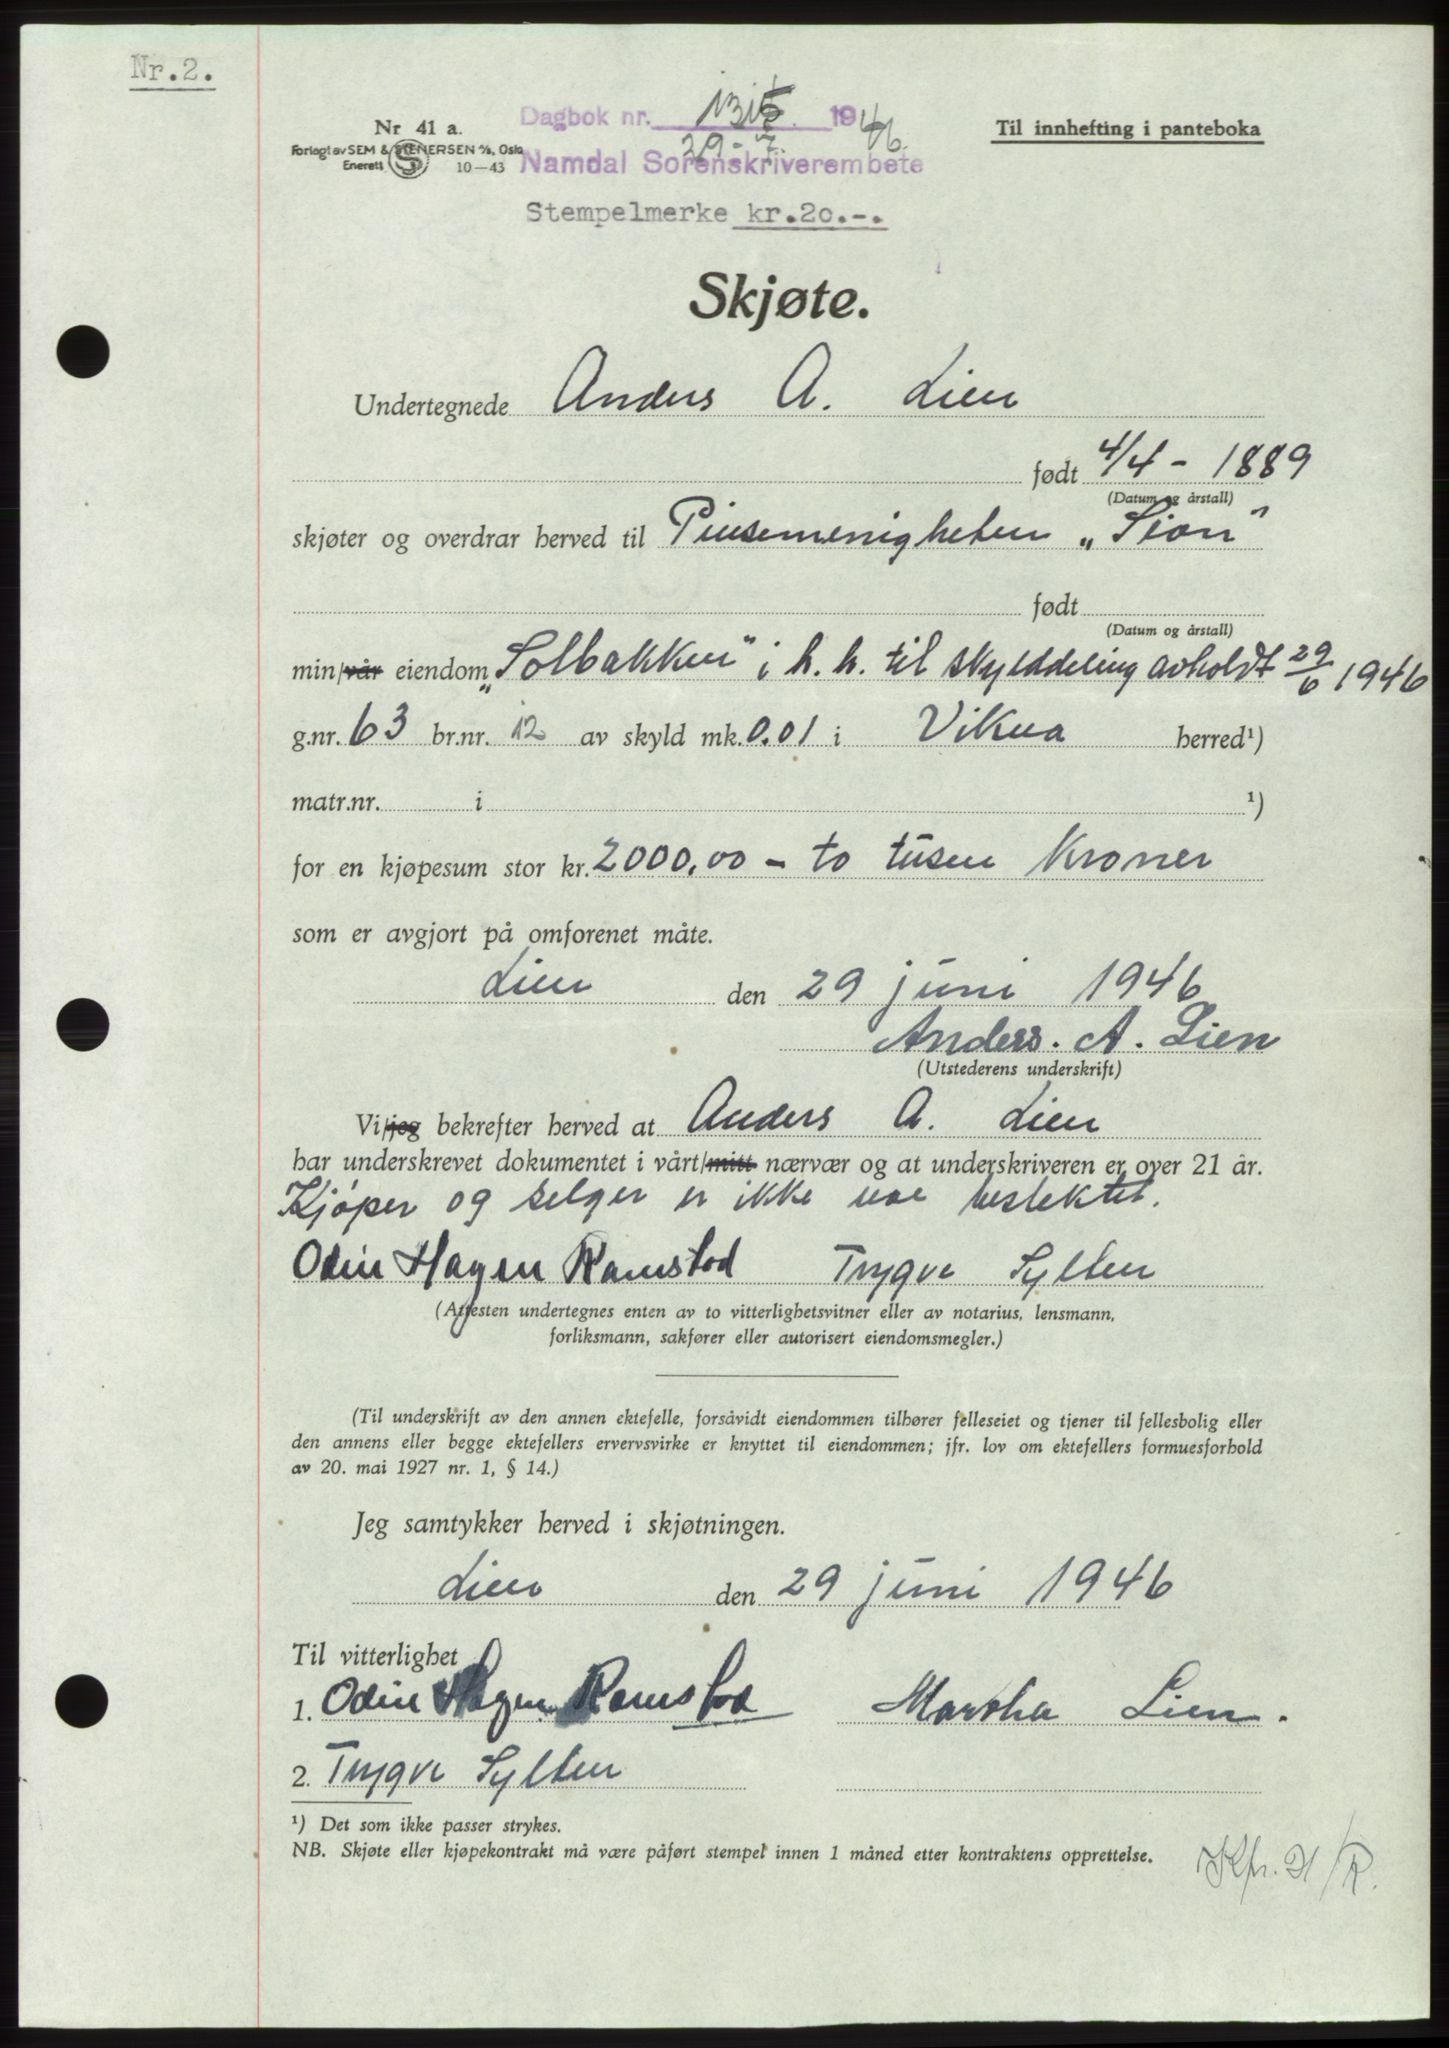 Nr.2.
Nr 41 a.
Forlagt av SEM & STENERSEN A/S, Oslo
Enerett 10—43
Dagbok nr. 1315 1946
29-7.
Namdal Sorenskriverembete
Stempelmerke kr.20.-.
Til innhefting i panteboka
Skjøte.
Undertegnede Anders A. Lien
født 4/4 - 1889
(Datum og årstall)
skjøter og overdrar herved til Pinsemenigheten „Sion"
født
(Datum og årstall)
min/vår eiendom „Solbakken" i h.h. til skylddeling avholdt 29/6 1946
g.nr. 63 br.nr. 12 av skyld mk. 0.01 i Vikna herred¹)
matr.nr. i ¹)
for en kjøpesum stor kr. 2000,00 - to tusen kroner
som er avgjort på omforenet måte.
Lien den 29 juni 1946
Anders. A. Lien
(Utstederens underskrift)
Vi/jeg bekrefter herved at Anders A. Lien
har underskrevet dokumentet i vårt/mitt nærvær og at underskriveren er over 21 år.
Kjøper og selger er ikke nær beslektet.
Odin Hagen Ramstad Trygve Sylten
(Attesten undertegnes enten av to vitterlighetsvitner eller av notarius, lensmann,
forliksmann, sakfører eller autorisert eiendomsmegler.)
(Til underskrift av den annen ektefelle, forsåvidt eiendommen tilhører felleseiet og tjener til fellesbolig eller
den annens eller begge ektefellers ervervsvirke er knyttet til eiendommen; jfr. lov om ektefellers formuesforhold
av 20. mai 1927 nr. 1, § 14.)
Jeg samtykker herved i skjøtningen.
Lien den 29 juni 1946
Til vitterlighet
1. Odin Hagen Ramstad Martha Lien.
2. Trygve Sylten
¹) Det som ikke passer strykes.
NB. Skjøte eller kjøpekontrakt må være påført stempel innen 1 måned etter kontraktens opprettelse.